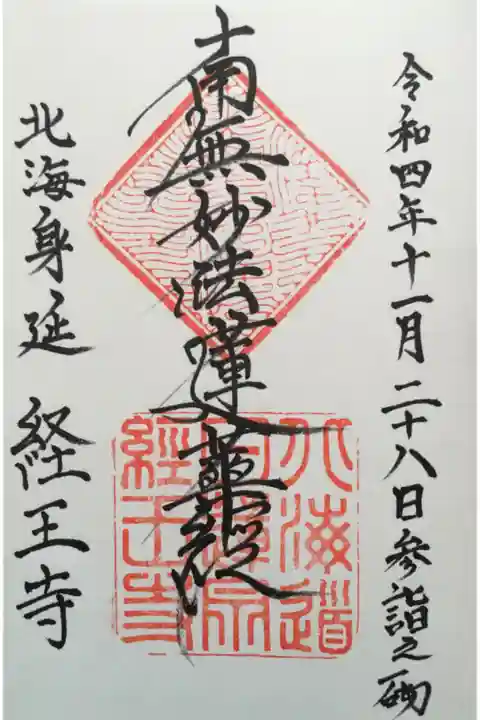 令和四年十一月二十八日参詣之砌
南無妙法蓮華経
北海身延 経王寺
北海道
日蓮宗
經王寺